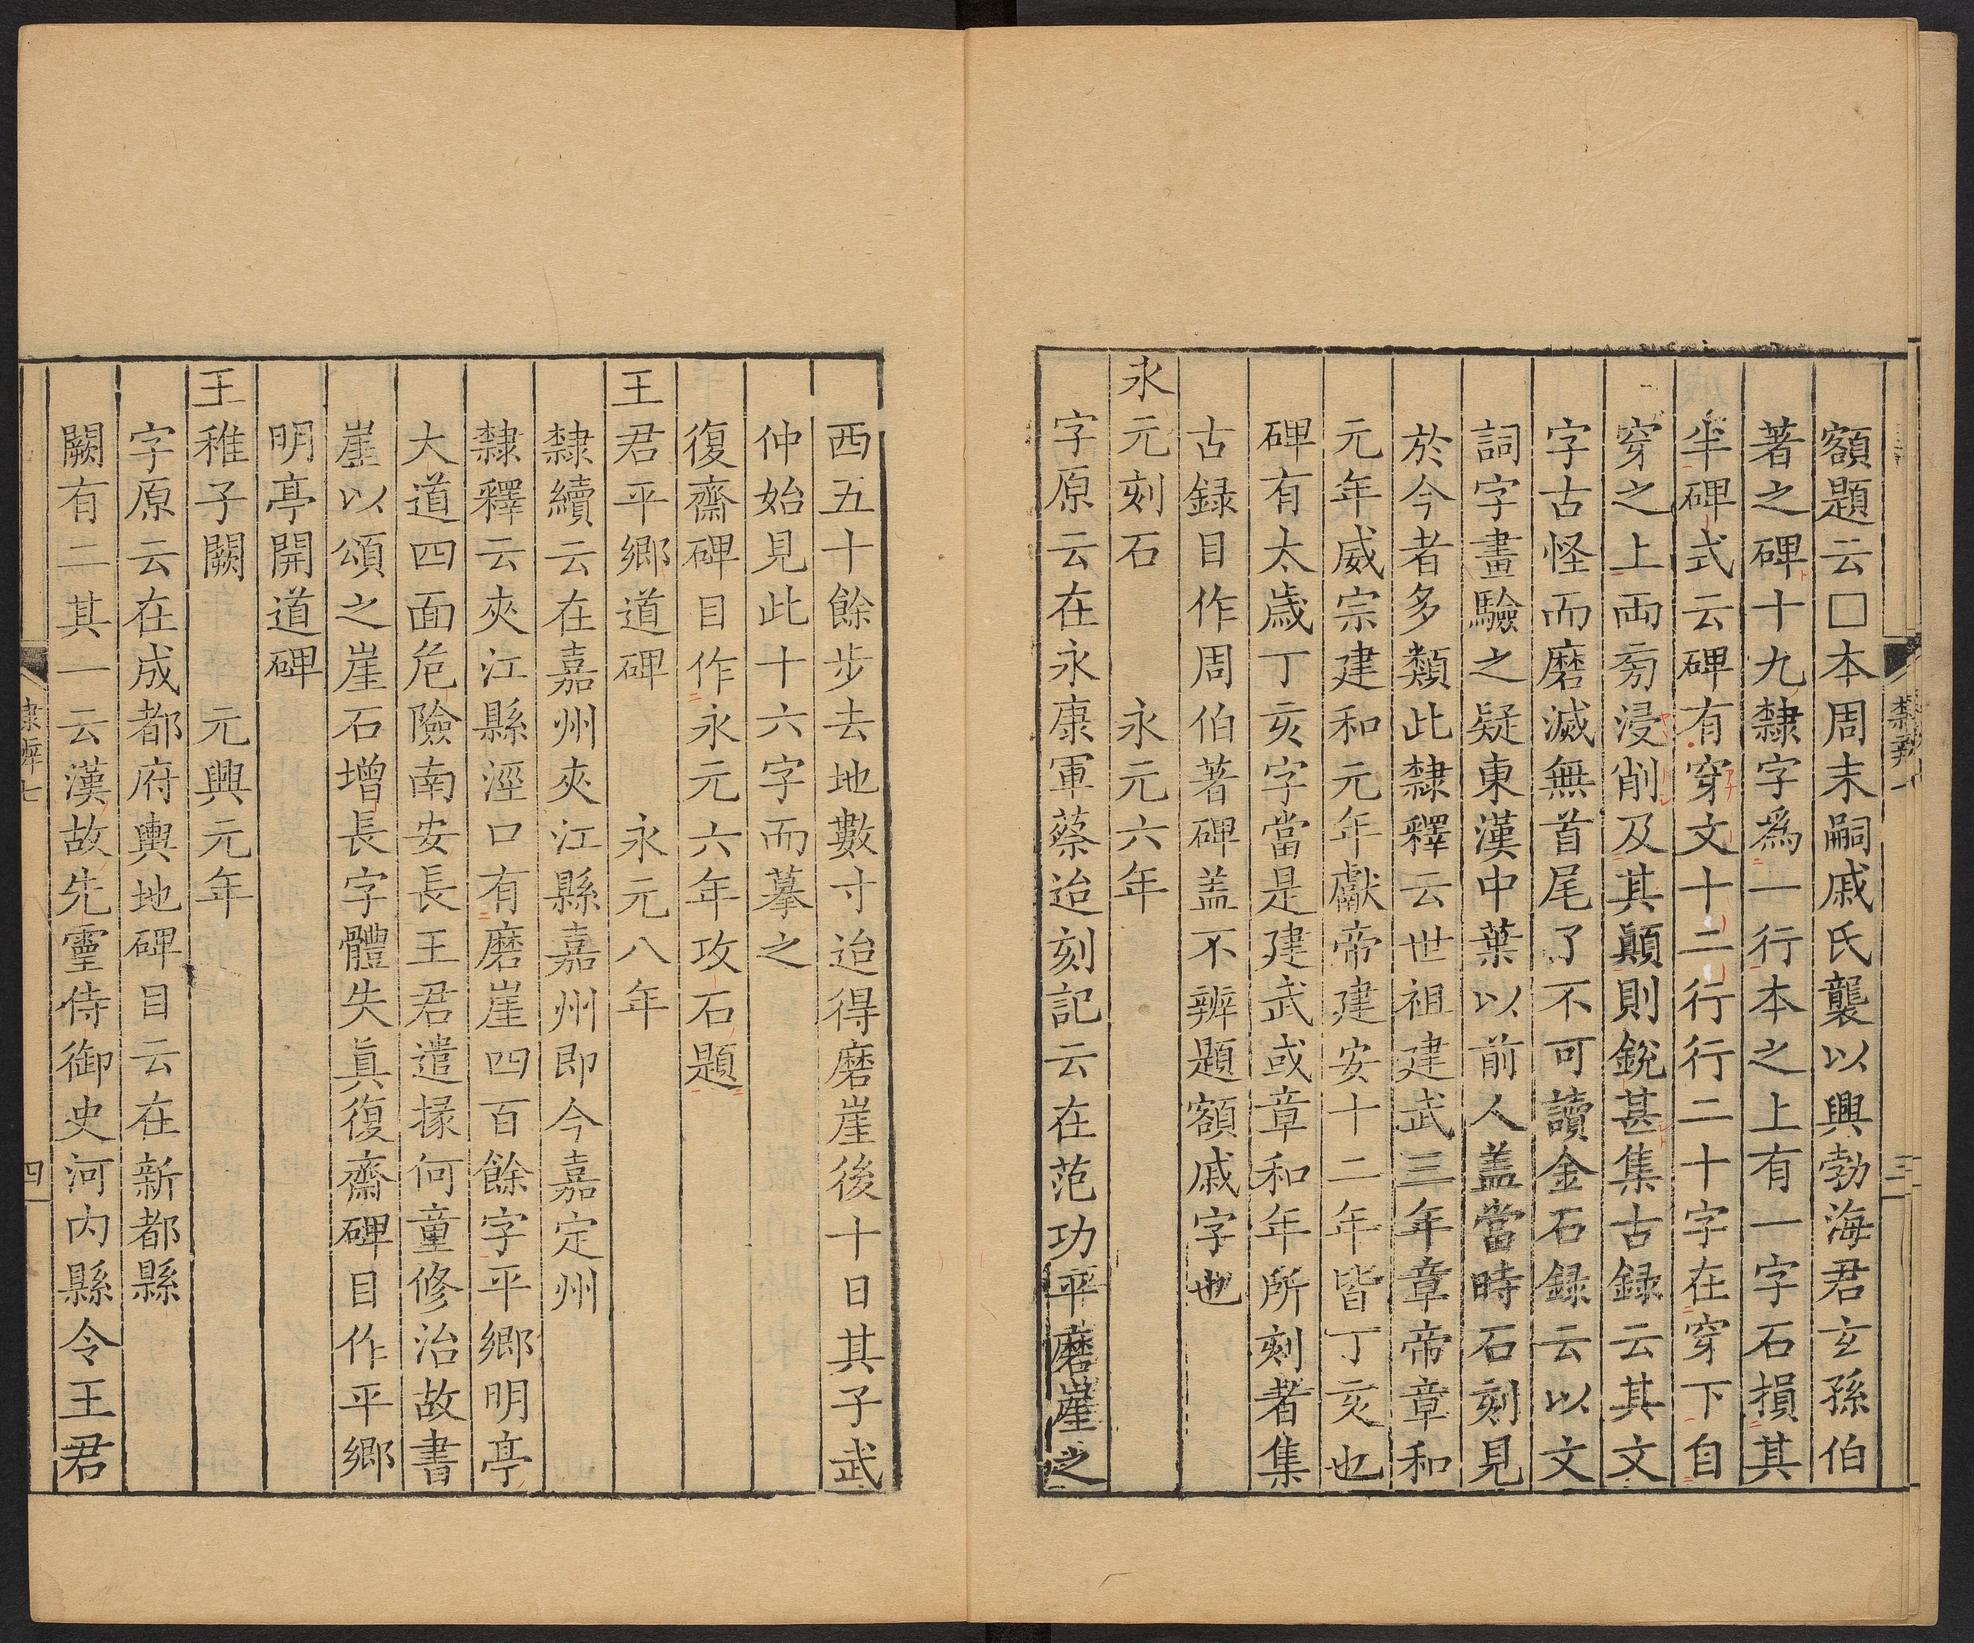 額題云□本周末嗣戚氏襲以興勃海君玄孫伯
著之碑十九隸字爲一行本之上有一字石損其
半碑式云碑有穿文十二行行二十字在穿下自
穿之上両旁浸削及其顛則銳甚集古録云其文
字古怪而磨滅無首尾了不可讀金石録云以文
詞字畫驗之疑東漢中葉以前人盖當時石刻見
於今者多類此隸釋云世祖建武三年章帝章和
元年威宗建和元年獻帝建安十二年皆丁亥也
碑有太歳丁亥字當是建武或章和年所刻者集
古録目作周伯著碑盖不辨題額戚字也
永元刻石　永元六年
字原云在永康軍蔡迨刻記云在范功平磨崖之
三
西五十餘步去地數寸迨得磨崖後十日其子武
仲始見此十六字而摹之
復齋碑目作永元六年攻石題
王君平鄉道碑　永元八年
隸續云在嘉州夾江縣嘉州即今嘉定州
隸釋云夾江縣涇口有磨崖四百餘字平鄉明亭
大道四面危險南安長王君遣掾何童修治故書
崖以頌之崖石增長字體失真復齋碑目作平鄉
明亭開道碑
王稚子闕　元興元年
字原云在成都府輿地碑目云在新都縣
闕有二其一云漢故先靈侍御史河内縣令王君
隸辨七
四